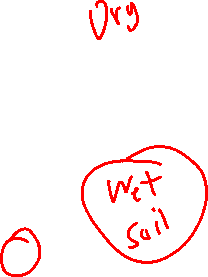 Dry
Wet
soil